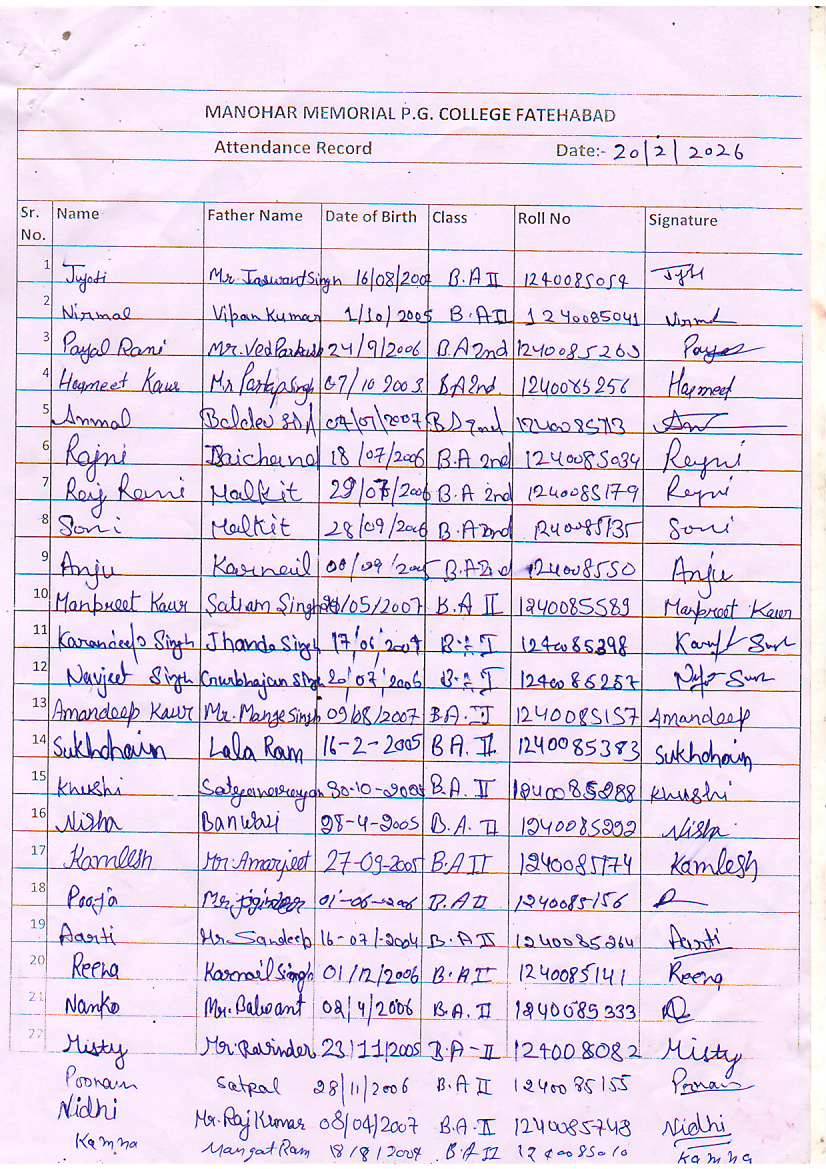 MANOHAR MEMORIAL P.G. COLLEGE FATEHABAD
Attendance Record Date:- 20/2/2026
Sr. No. Name Father Name Date of Birth Class Roll No Signature
1 Jyoti Mr. Jaswant Singh 16/08/200 B.A II 1240085054
2 Nirmal Vipan Kumar 1/10/2005 B.A II 1240085041 Nirmal
3 Payal Rani Mr. Ved Parkash 24/9/2006 B.A 2nd 1240085263 Payal
4 Harmeet Kaur Mr Partap Singh 07/10 2003 B.A 2nd. 1240085256 Harmeet
5 Anmol Baldev 07/2007 B.A 2nd
6 Rajni Jaichand 18/07/2006 B.A 2nd 1240085034 Rajni
7 Raj Rani Malkit 29/07/2006 B.A 2nd 1240085179 Rajni
8 Soni Malkit 28/09/2006 B.A 2nd 1240085135 Soni
9 Anju Karnail B.A 2nd 124008550 Anju
10 Manpreet Kaur Satnam Singh /05/2007 B.A II 1240085589 Manpreet Kaur
11 Karandeep Singh Jhanda Singh 17'06'2007 B.A II 1240085398
12 Navjeet Singh Gurbhajan Singh 20'07'2006 B.A II 1240085257
13 Amandeep Kaur Mr. Mange Singh 09/08/2007 B.A. II 1240085157 Amandeep
14 Sukhchain Lala Ram 16-2-2005 B A. II 1240085383 Sukhchain
15 Khushi Satyanarayan 30-10- B.A. II 1240085288 Khushi
16 Nisha Banwari 28-4-2005 B.A. II 1240085292 Nisha
17 Kamlesh Mr. Amarjeet 27-09-2005 B.A II 1240085174 Kamlesh
18 Pooja Mr. Joginder 01-06-2006 B.A II 1240085156
19 Aarti Mr. Sandeep 16-07-2004 B.A II 1240085264 Aarti
20 Reena Karnail Singh 01/12/2006 B.A II 1240085141 Reena
21 Nanko Mr. Balwant 02/4/2006 B.A. II 1240085333
22 Misty Mr. Ravinder 23/11/2005 B.A-II 124008082 Misty
Poonam Satpal 28/11/2006 B.A II 1240085155 Poonam
Nidhi Mr. Raj Kumar 08/04/2007 B.A. II 1240085748 Nidhi
Kamna Mangat Ram 18/8/2004 B.A II 1240085010 Kamna